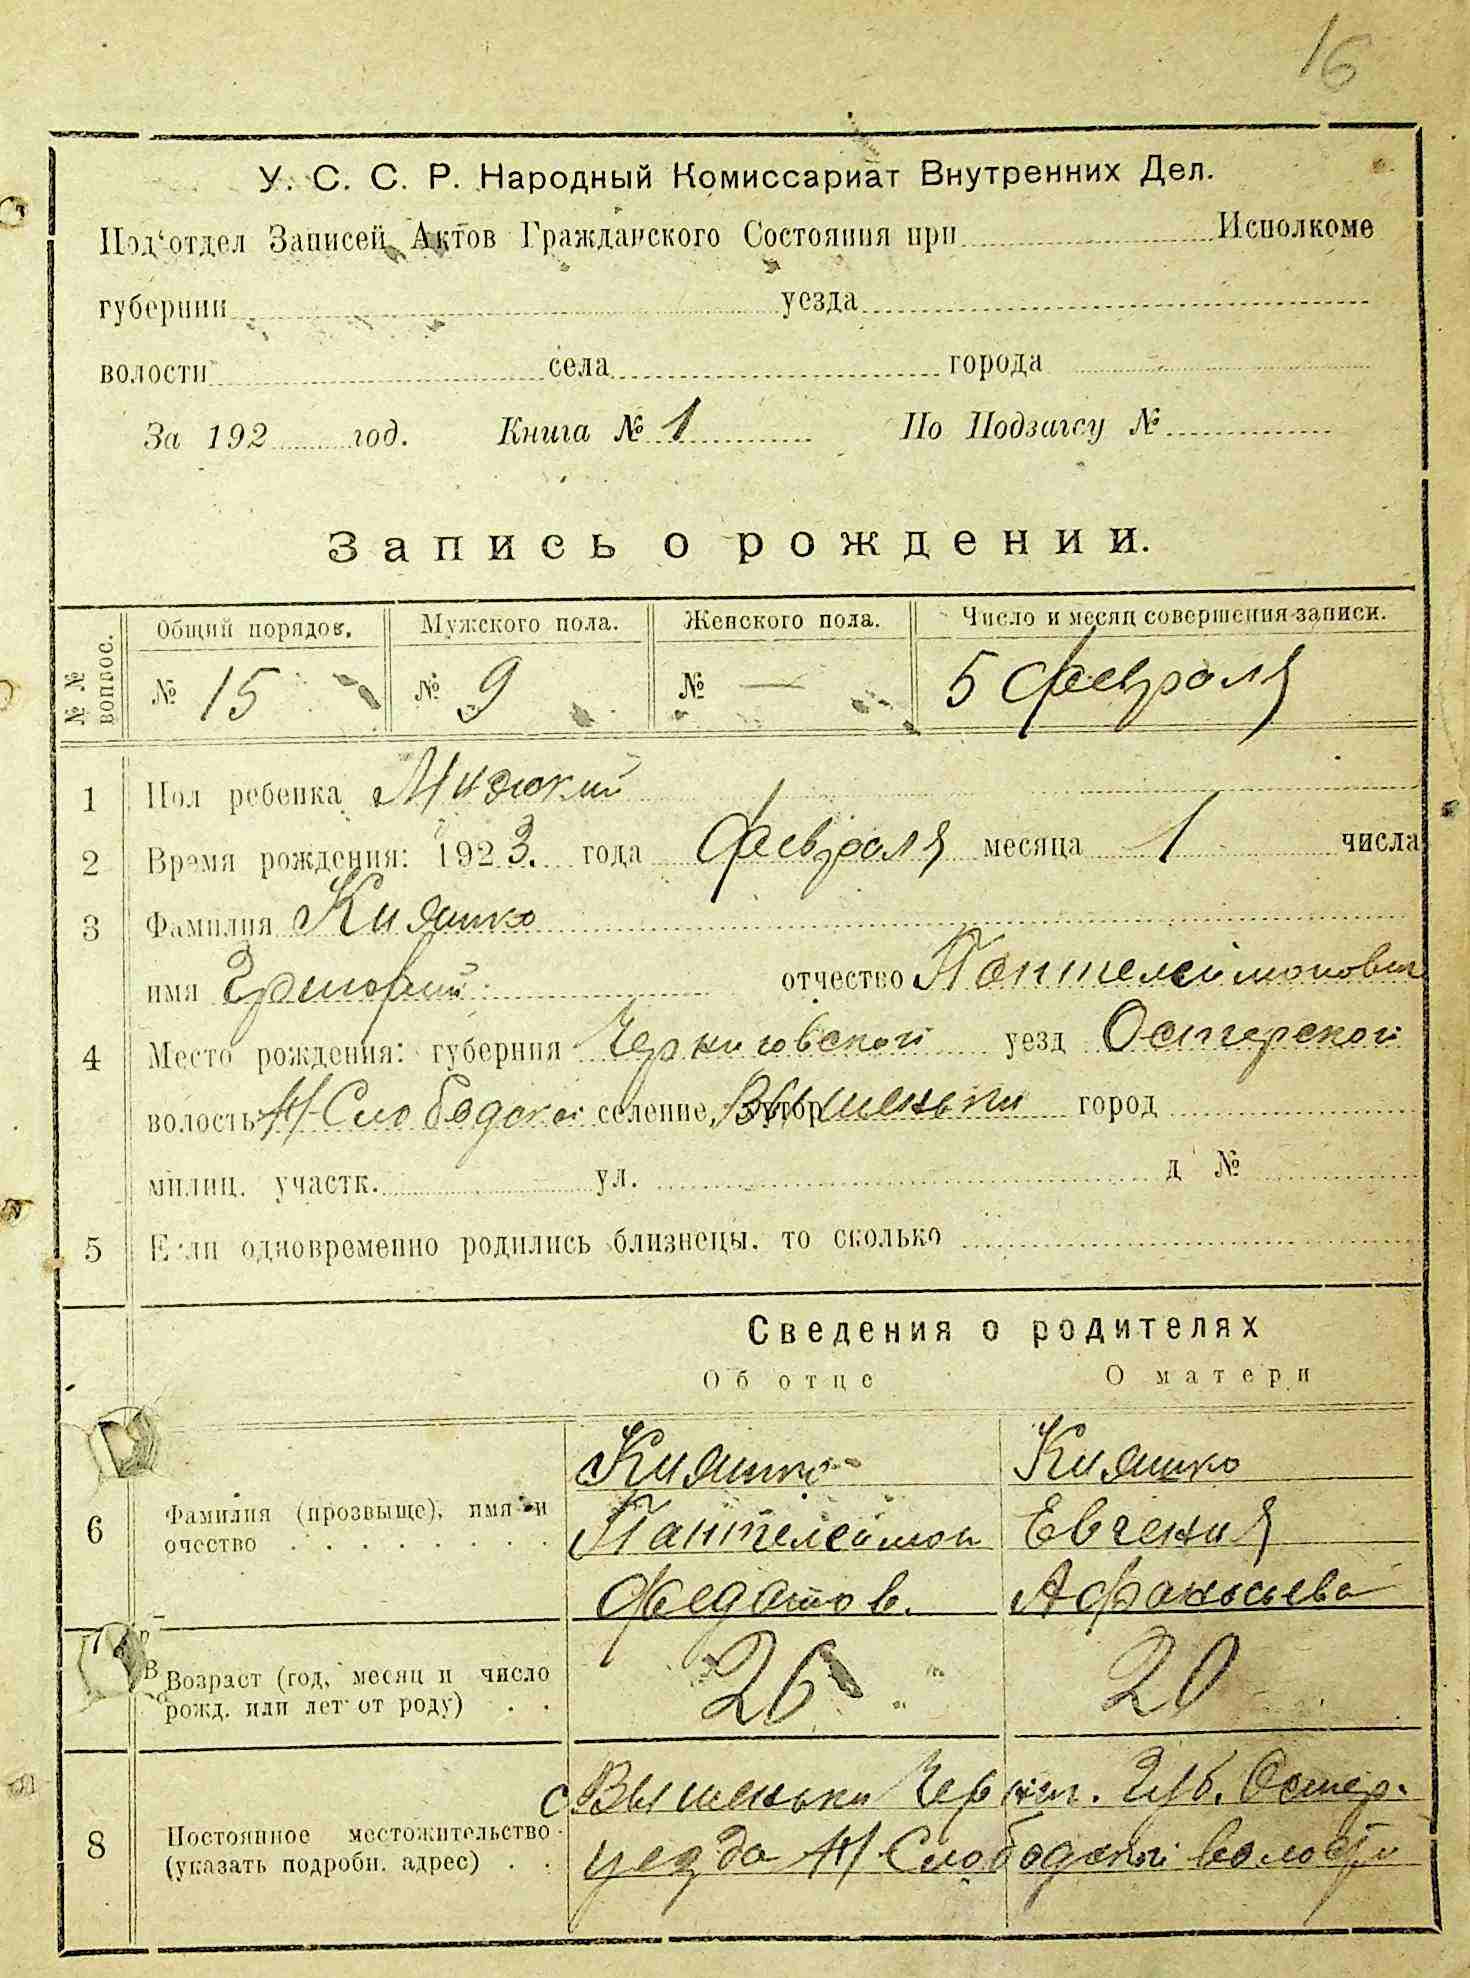 16
У. С. С. Р. Народный Комиссариат Внутренних Дел.
Под'отдел Записей Актов Гражданского Состояния при Исполкоме
губернии уезда
волости села города
За 192 год. Книга № 1 По Подзагсу №
Запись о рождении.
№ № вопрос. Общий порядов. Мужского пола. Женского пола. Число и месяц совершения записи.
№ 15 № 9 № — 5 февраля
1 Пол ребенка Мужской
2 Время рождения: 1923. года февраля месяца 1 числа
3 Фамилия Кияшко
имя Григорий отчество Пантелеймонович
4 Место рождения: губерния Черниговской уезд Остерской
волость Н/Слободской селение, хутор Вышеньки город
милиц. участк. ул. д №
5 Если одновременно родились близнецы, то сколько
Сведения о родителях
Об отце О матери
Кияшко Кияшко
6 Фамилия (прозвыще), имя и очество Пантелеймон Евгения
Федотов. Афанасьева
7 Возраст (год, месяц и число рожд. или лет от роду) 26 20
с. Вышеньки Черниг. Губ. Остер.
8 Постоянное местожительство (указать подробн. адрес) уезда Н/Слободской волости